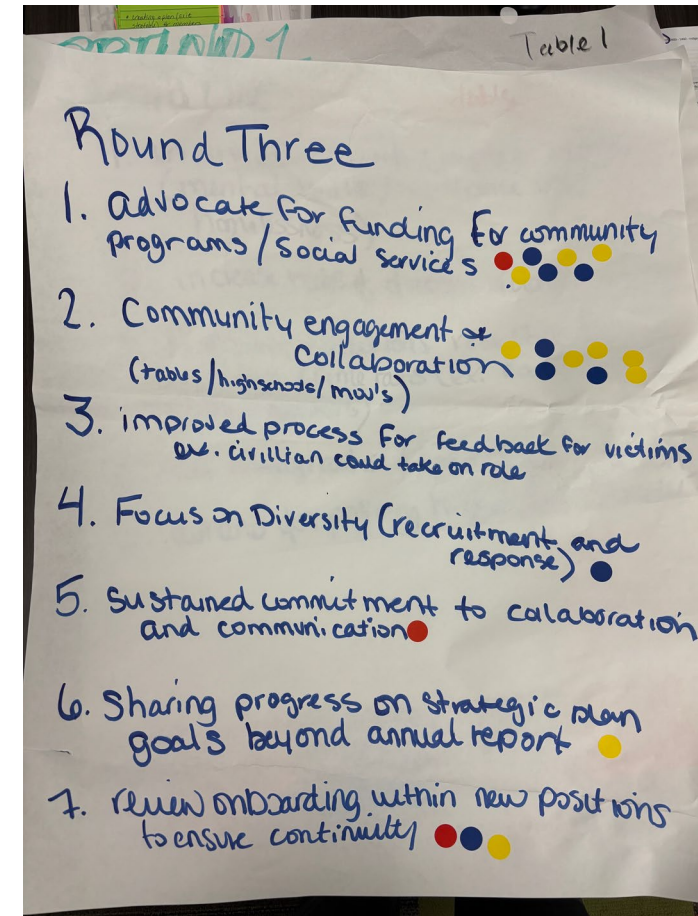 Table 1
Round Three
1. advocate for funding for community
programs / social services
2. Community engagement or
Collaboration
(tables / highschools / mou's)
3. improved process for feedback for victims
ex. civillian could take on role
4. Focus on Diversity (recruitment and
response)
5. sustained commitment to calaboration
and communication
6. Sharing progress on strategic plan
goals beyond annual report
7. review onboarding within new positions
to ensure continuity